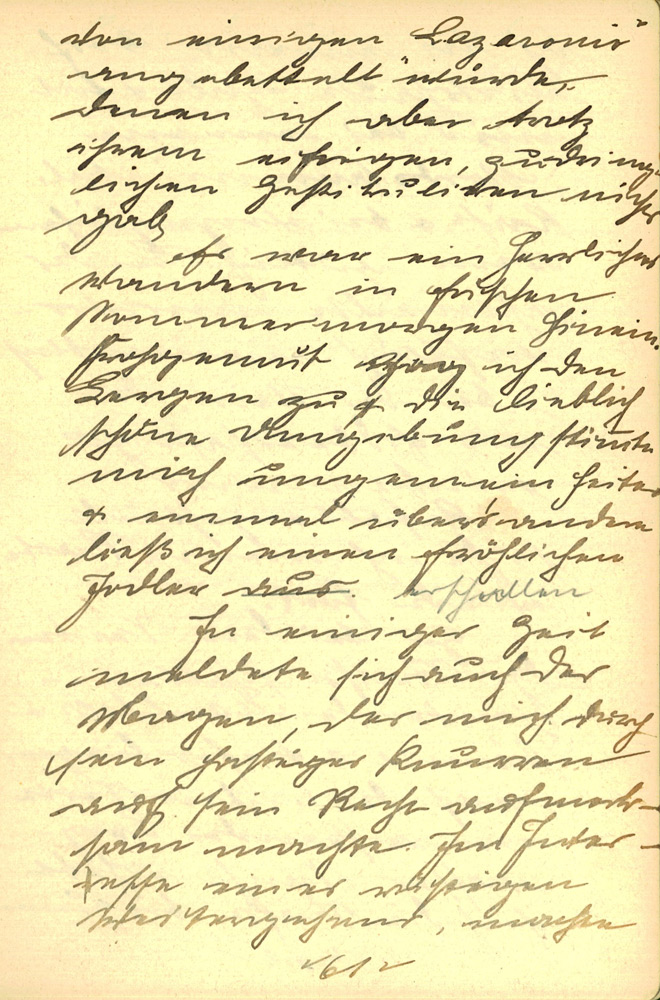 von einigen Lazaronis
angebettelt wurde,
denen ich aber trotz
ihrem eifrigen, zudring-
lichen Gestikulieren nichts
gab
Es war ein herrliches
Wandern in frischen
Sommermorgen hinein.
Frohgemut zog ich den
Bergen zu & die lieblich
schöne Umgebung stimmte
mich ungemein heiter
& einmal über's andere
ließ ich einen fröhlichen
Jodler aus. erschallen
In einiger Zeit
meldete sich auch der
Magen, der mich durch
sein hastiges Knurren
auf sein Recht aufmerk-
sam machte. Im Inter-
esse eines rüstigen
Weitergehens, machte
61